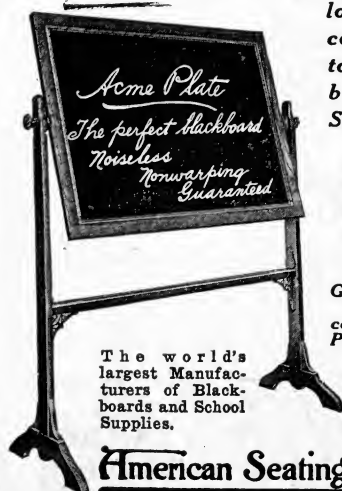 lo
co
to
b
S
Acme Plate
The perfect blackboard
Noiseless
Nonwarping
Guaranteed
G
co
P
The world's
largest Manufac-
turers of Black-
boards and School
Supplies.
American Seating